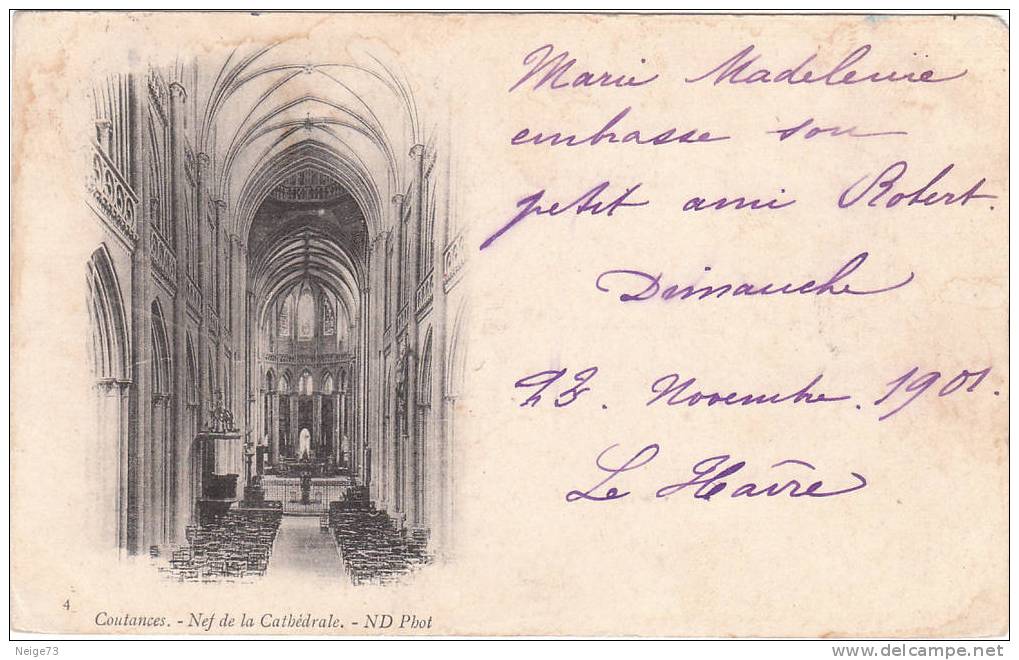 Marie Madeleine
embrasse son
petit ami Robert.
Dimanche
23. Novembre. 1901.
Le Havre
4
Coutances. - Nef de la Cathédrale. - ND Phot
Neige73
www.delcampe.net